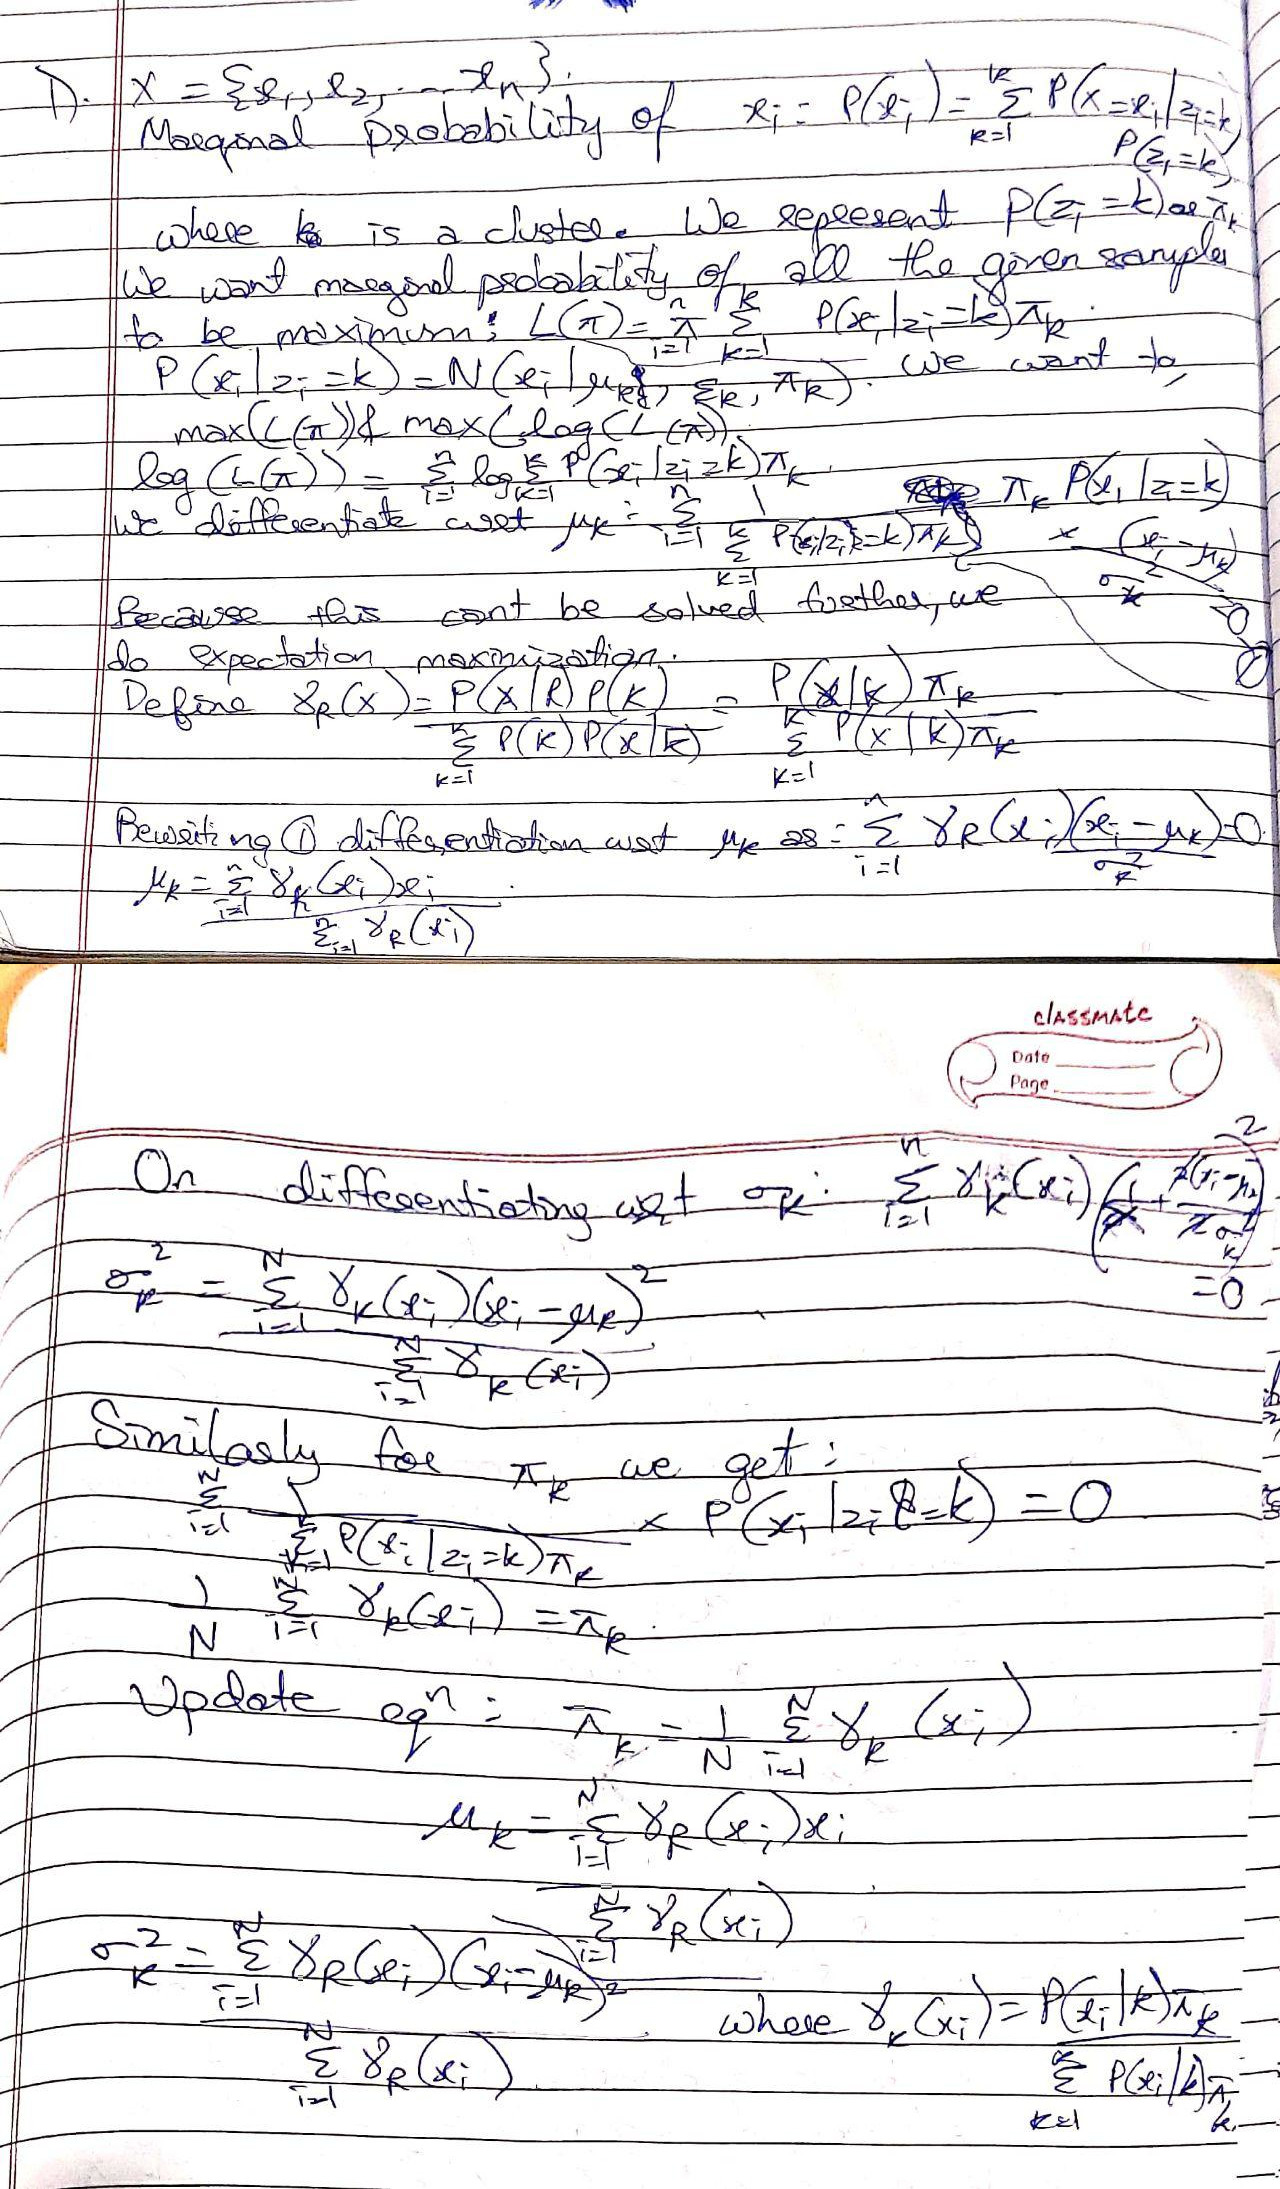 1). X = {x₁, x₂, ... xₙ}.
Marginal probability of xᵢ = P(xᵢ) = Σ_{k=1}^{k} P(x=xᵢ|zᵢ=k) P(zᵢ=k)
where k is a cluster. We represent P(zᵢ=k) as πₖ
We want marginal probability of all the given samples
to be maximum: L(π) = π_{i=1}^{n} Σ_{k=1}^{k} P(xᵢ|zᵢ=k)πₖ.
P(xᵢ|zᵢ=k) = N(xᵢ|μₖ, Σₖ, πₖ). We want to
max(L(π)) & max(log(L(π)).
log(L(π)) = Σ_{i=1}^{n} log Σ_{k=1}^{k} P(xᵢ|zᵢ=k)πₖ.
We differentiate wrt μₖ: Σ_{i=1}^{n} 1 / (Σ_{k=1}^{k} P(xᵢ|zᵢ=k)πₖ) πₖ P(xᵢ|zᵢ=k) × (xᵢ-μₖ)/σₖ² = 0 ①
Because this can't be solved further, we
do expectation maximization.
Define γₖ(x) = P(x|k) P(k) / (Σ_{k=1}^{k} P(k) P(x|k)) = P(x|k) πₖ / (Σ_{k=1}^{k} P(x|k)πₖ)
Rewriting ① differentiation wrt μₖ as = Σ_{i=1}^{n} γₖ(xᵢ)(xᵢ-μₖ)/σₖ² = 0.
μₖ = Σ_{i=1}^{n} γₖ(xᵢ)xᵢ / Σ_{i=1}^{n} γₖ(xᵢ)
classmate
Date
Page
On differentiating wrt σₖ: Σ_{i=1}^{n} γₖ(xᵢ) (1/2 + 2(xᵢ-μₖ)²/2σₖ²) = 0
σₖ² = Σ_{i=1}^{N} γₖ(xᵢ)(xᵢ-μₖ)² / Σ_{i=1}^{N} γₖ(xᵢ)
Similarly for πₖ we get:
Σ_{i=1}^{N} 1 / (Σ_{k=1}^{k} P(xᵢ|zᵢ=k)πₖ) × P(xᵢ|zᵢ=k) = 0
1/N Σ_{i=1}^{N} γₖ(xᵢ) = πₖ.
Update eqⁿ: πₖ = 1/N Σ_{i=1}^{N} γₖ(xᵢ)
μₖ = Σ_{i=1}^{N} γₖ(xᵢ)xᵢ / Σ_{i=1}^{N} γₖ(xᵢ)
σₖ² = Σ_{i=1}^{N} γₖ(xᵢ)(xᵢ-μₖ)² / Σ_{i=1}^{N} γₖ(xᵢ) where γₖ(xᵢ) = P(xᵢ|k)πₖ / Σ_{k=1}^{k} P(xᵢ|k)πₖ.